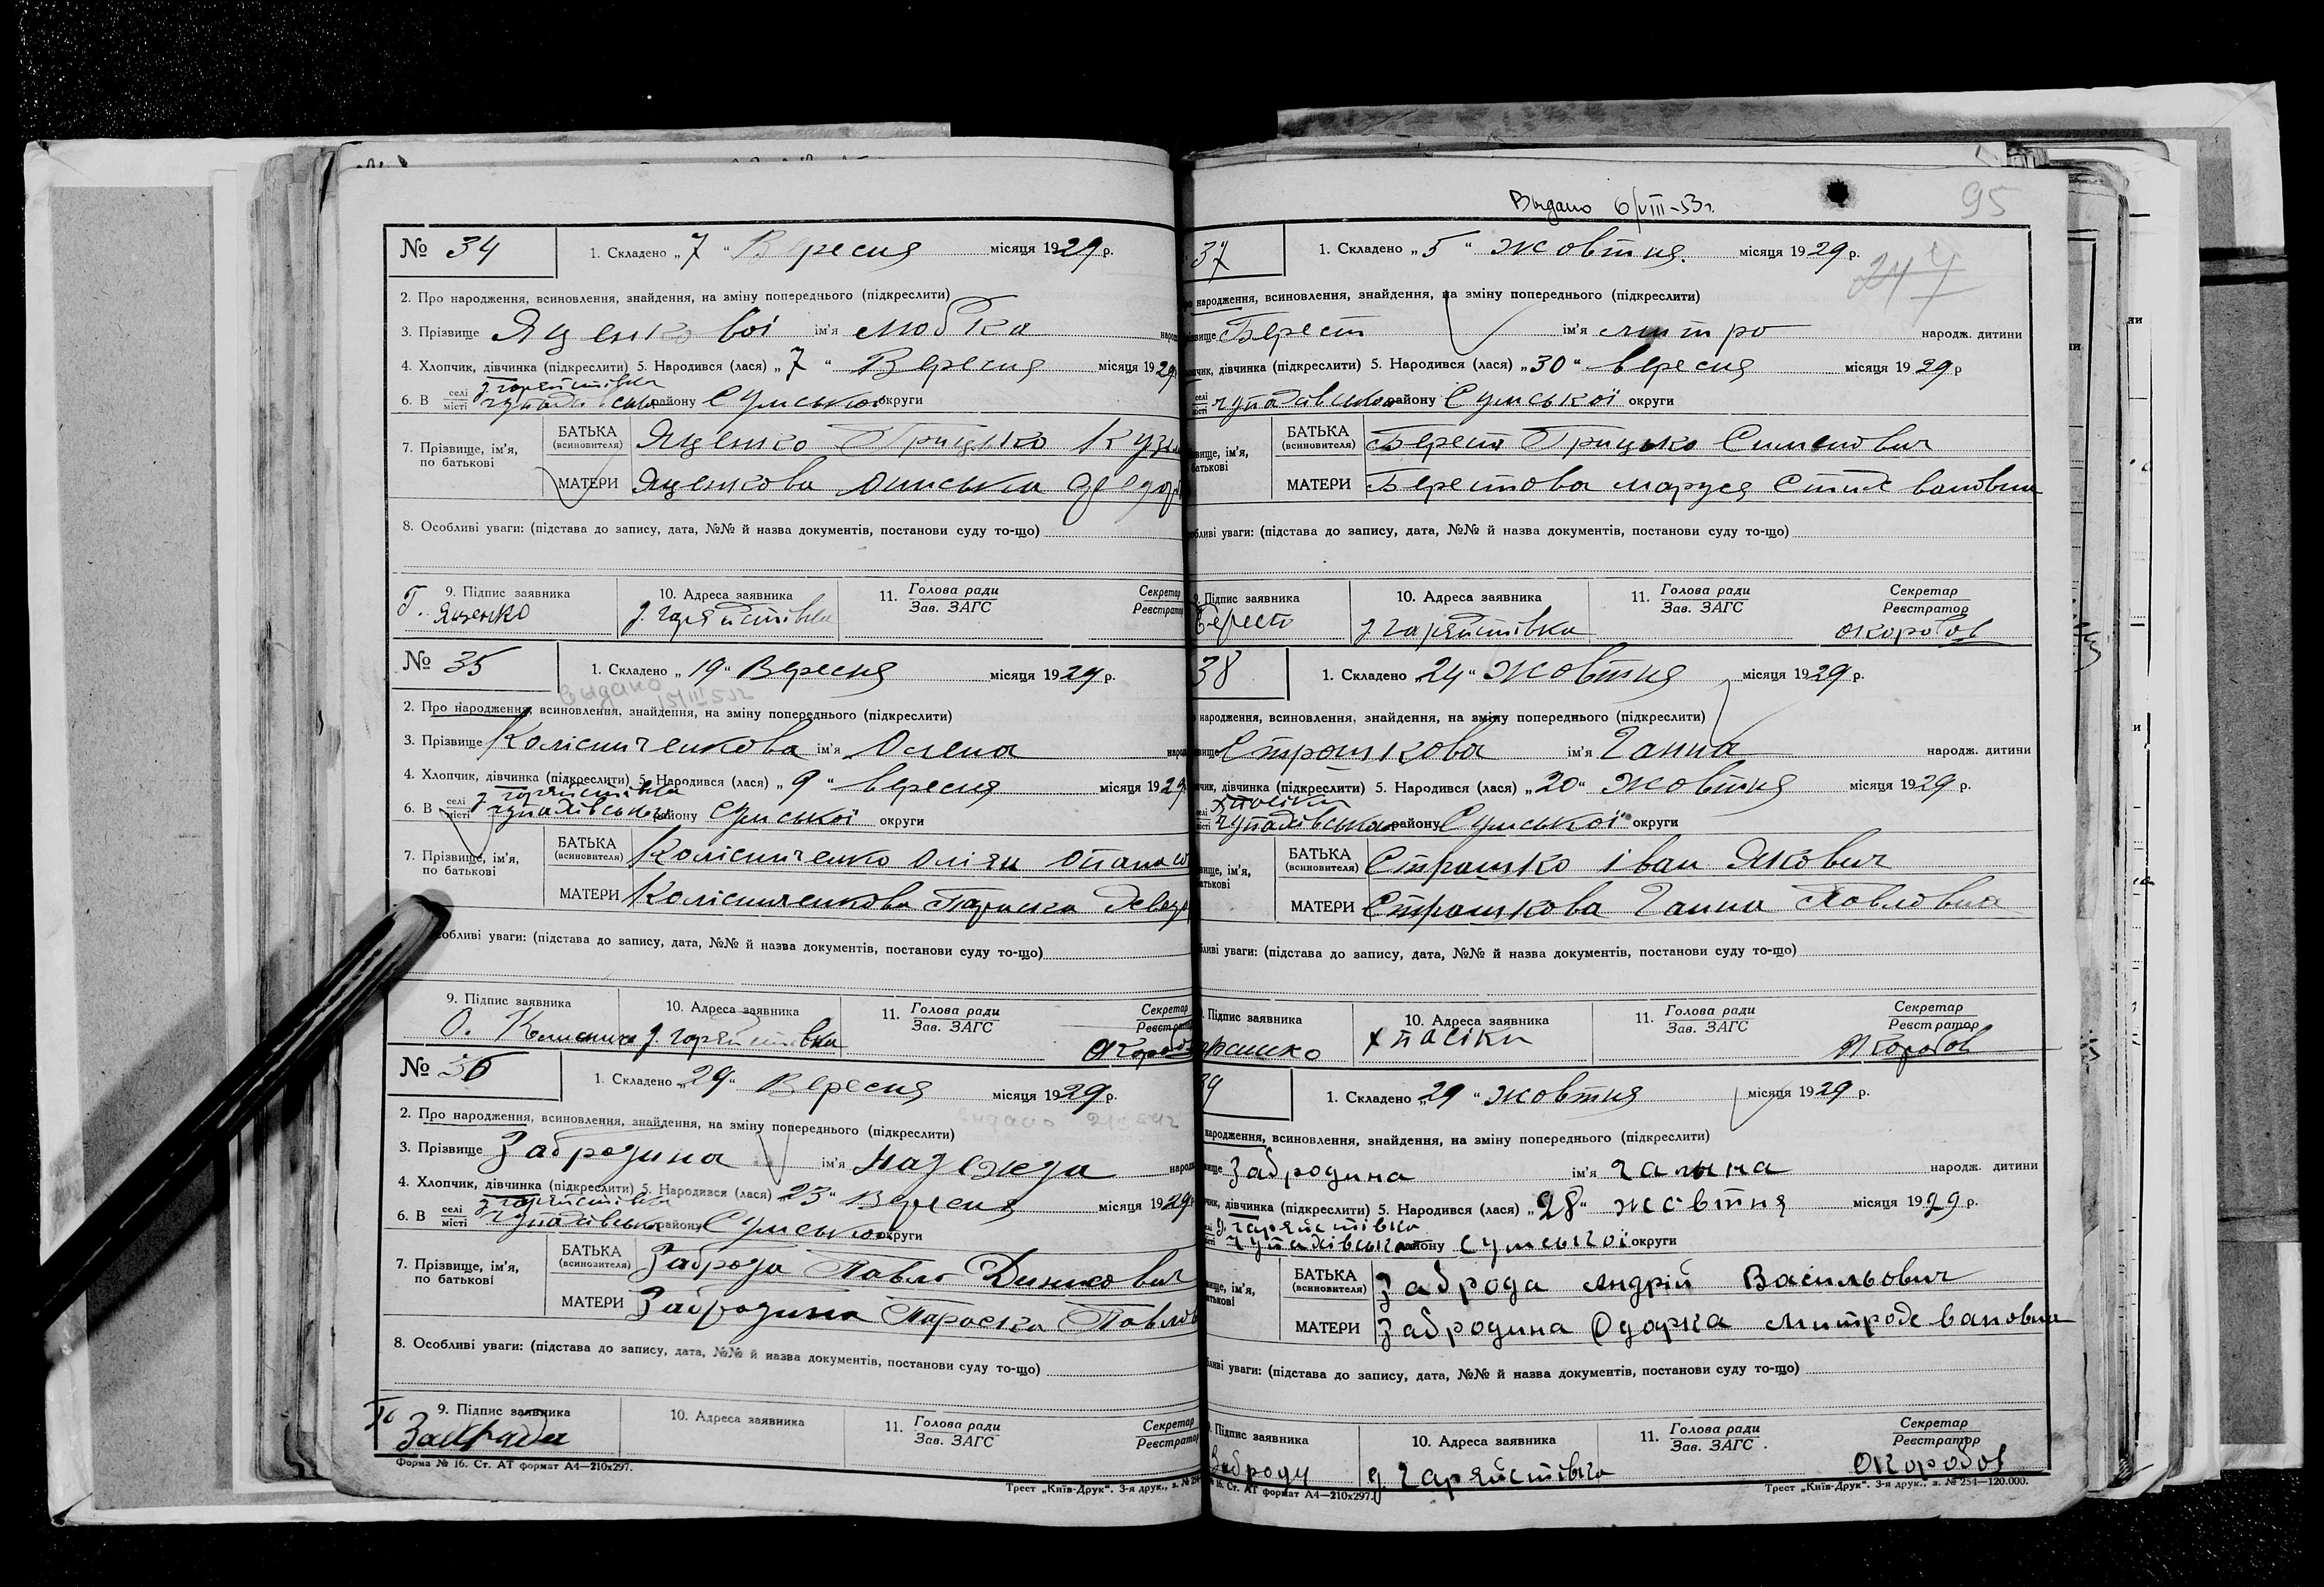 № 34 1. Складено „ 7 " Вересня місяця 1929 р.
2. Про народження, всиновлення, знайдення, на зміну попереднього (підкреслити)
3. Прізвище Яценкової ім'я Любка
4. Хлопчик, дівчинка (підкреслити) 5. Народився (лася) „ 7 " Вересня місяця 1929
6. В селі місті району Сумської округи
7. Прізвище, ім'я, по батькові
БАТЬКА (всиновителя) Яценко Грицько
МАТЕРИ Яценкова
8. Особливі уваги: (підстава до запису, дата, №№ й назва документів, постанови суду то-що)
9. Підпис заявника 10. Адреса заявника 11. Голова ради Зав. ЗАГС Секретар Реєстратор
Г. Яценко
№ 35 1. Складено „ 19 " Вересня місяця 1929 р.
Выдано
2. Про народження, всиновлення, знайдення, на зміну попереднього (підкреслити)
3. Прізвище Колісниченкова ім'я Олена
4. Хлопчик, дівчинка (підкреслити) 5. Народився (лася) „ 9 " вересня місяця 1929
6. В селі місті району Сумської округи
7. Прізвище, ім'я, по батькові
БАТЬКА (всиновителя) Колісниченко
МАТЕРИ Колісниченкова Параска
Особливі уваги: (підстава до запису, дата, №№ й назва документів, постанови суду то-що)
9. Підпис заявника 10. Адреса заявника 11. Голова ради Зав. ЗАГС Секретар Реєстратор
№ 36 1. Складено „ 29 " Вересня місяця 1929 р.
2. Про народження, всиновлення, знайдення, на зміну попереднього (підкреслити)
3. Прізвище Забродина ім'я Надежда
4. Хлопчик, дівчинка (підкреслити) 5. Народився (лася) „ 23 " Вересня місяця 1929
6. В селі місті району Сумської округи
7. Прізвище, ім'я, по батькові
БАТЬКА (всиновителя) Заброда Павло
МАТЕРИ Забродина Параска
8. Особливі уваги: (підстава до запису, дата, №№ й назва документів, постанови суду то-що)
9. Підпис заявника 10. Адреса заявника 11. Голова ради Зав. ЗАГС Секретар Реєстратор
Форма № 16. Ст. АТ формат А4—210x297.
Трест „Київ-Друк". 3-я друк., з. №
Выдано 6/VIII-53г.
95
37 1. Складено „ 5 " Жовтня місяця 1929 р.
народження, всиновлення, знайдення, на зміну попереднього (підкреслити)
Берест ім'я Митро народж. дитини
дівчинка (підкреслити) 5. Народився (лася) „ 30 " вересня місяця 1929 р
району Сумської округи
БАТЬКА (всиновителя) Берест Грицько Семенович
МАТЕРИ Берестова Маруся
уваги: (підстава до запису, дата, №№ й назва документів, постанови суду то-що)
Підпис заявника 10. Адреса заявника 11. Голова ради Зав. ЗАГС Секретар Реєстратор
Берест
38 1. Складено „ 24 " Жовтня місяця 1929 р.
народження, всиновлення, знайдення, на зміну попереднього (підкреслити)
Страшкова ім'я Ганна народж. дитини
дівчинка (підкреслити) 5. Народився (лася) „ 20 " Жовтня місяця 1929 р.
району Сумської округи
БАТЬКА (всиновителя) Страшко Іван Якович
МАТЕРИ Страшкова Ганна Павловна
уваги: (підстава до запису, дата, №№ й назва документів, постанови суду то-що)
Підпис заявника 10. Адреса заявника 11. Голова ради Зав. ЗАГС Секретар Реєстратор
х Пасіки
39 1. Складено „ 29 " Жовтня місяця 1929 р.
народження, всиновлення, знайдення, на зміну попереднього (підкреслити)
Забродина ім'я Галина народж. дитини
дівчинка (підкреслити) 5. Народився (лася) „ 28 " жовтня місяця 1929 р.
району Сумської округи
БАТЬКА (всиновителя) Заброда Андрій Васильович
МАТЕРИ Забродина Одарка Митрофановна
уваги: (підстава до запису, дата, №№ й назва документів, постанови суду то-що)
Підпис заявника 10. Адреса заявника 11. Голова ради Зав. ЗАГС Секретар Реєстратор
16. Ст. АТ формат А4—210x297.
Трест „Київ-Друк". 3-я друк., з. № 254—120.000.